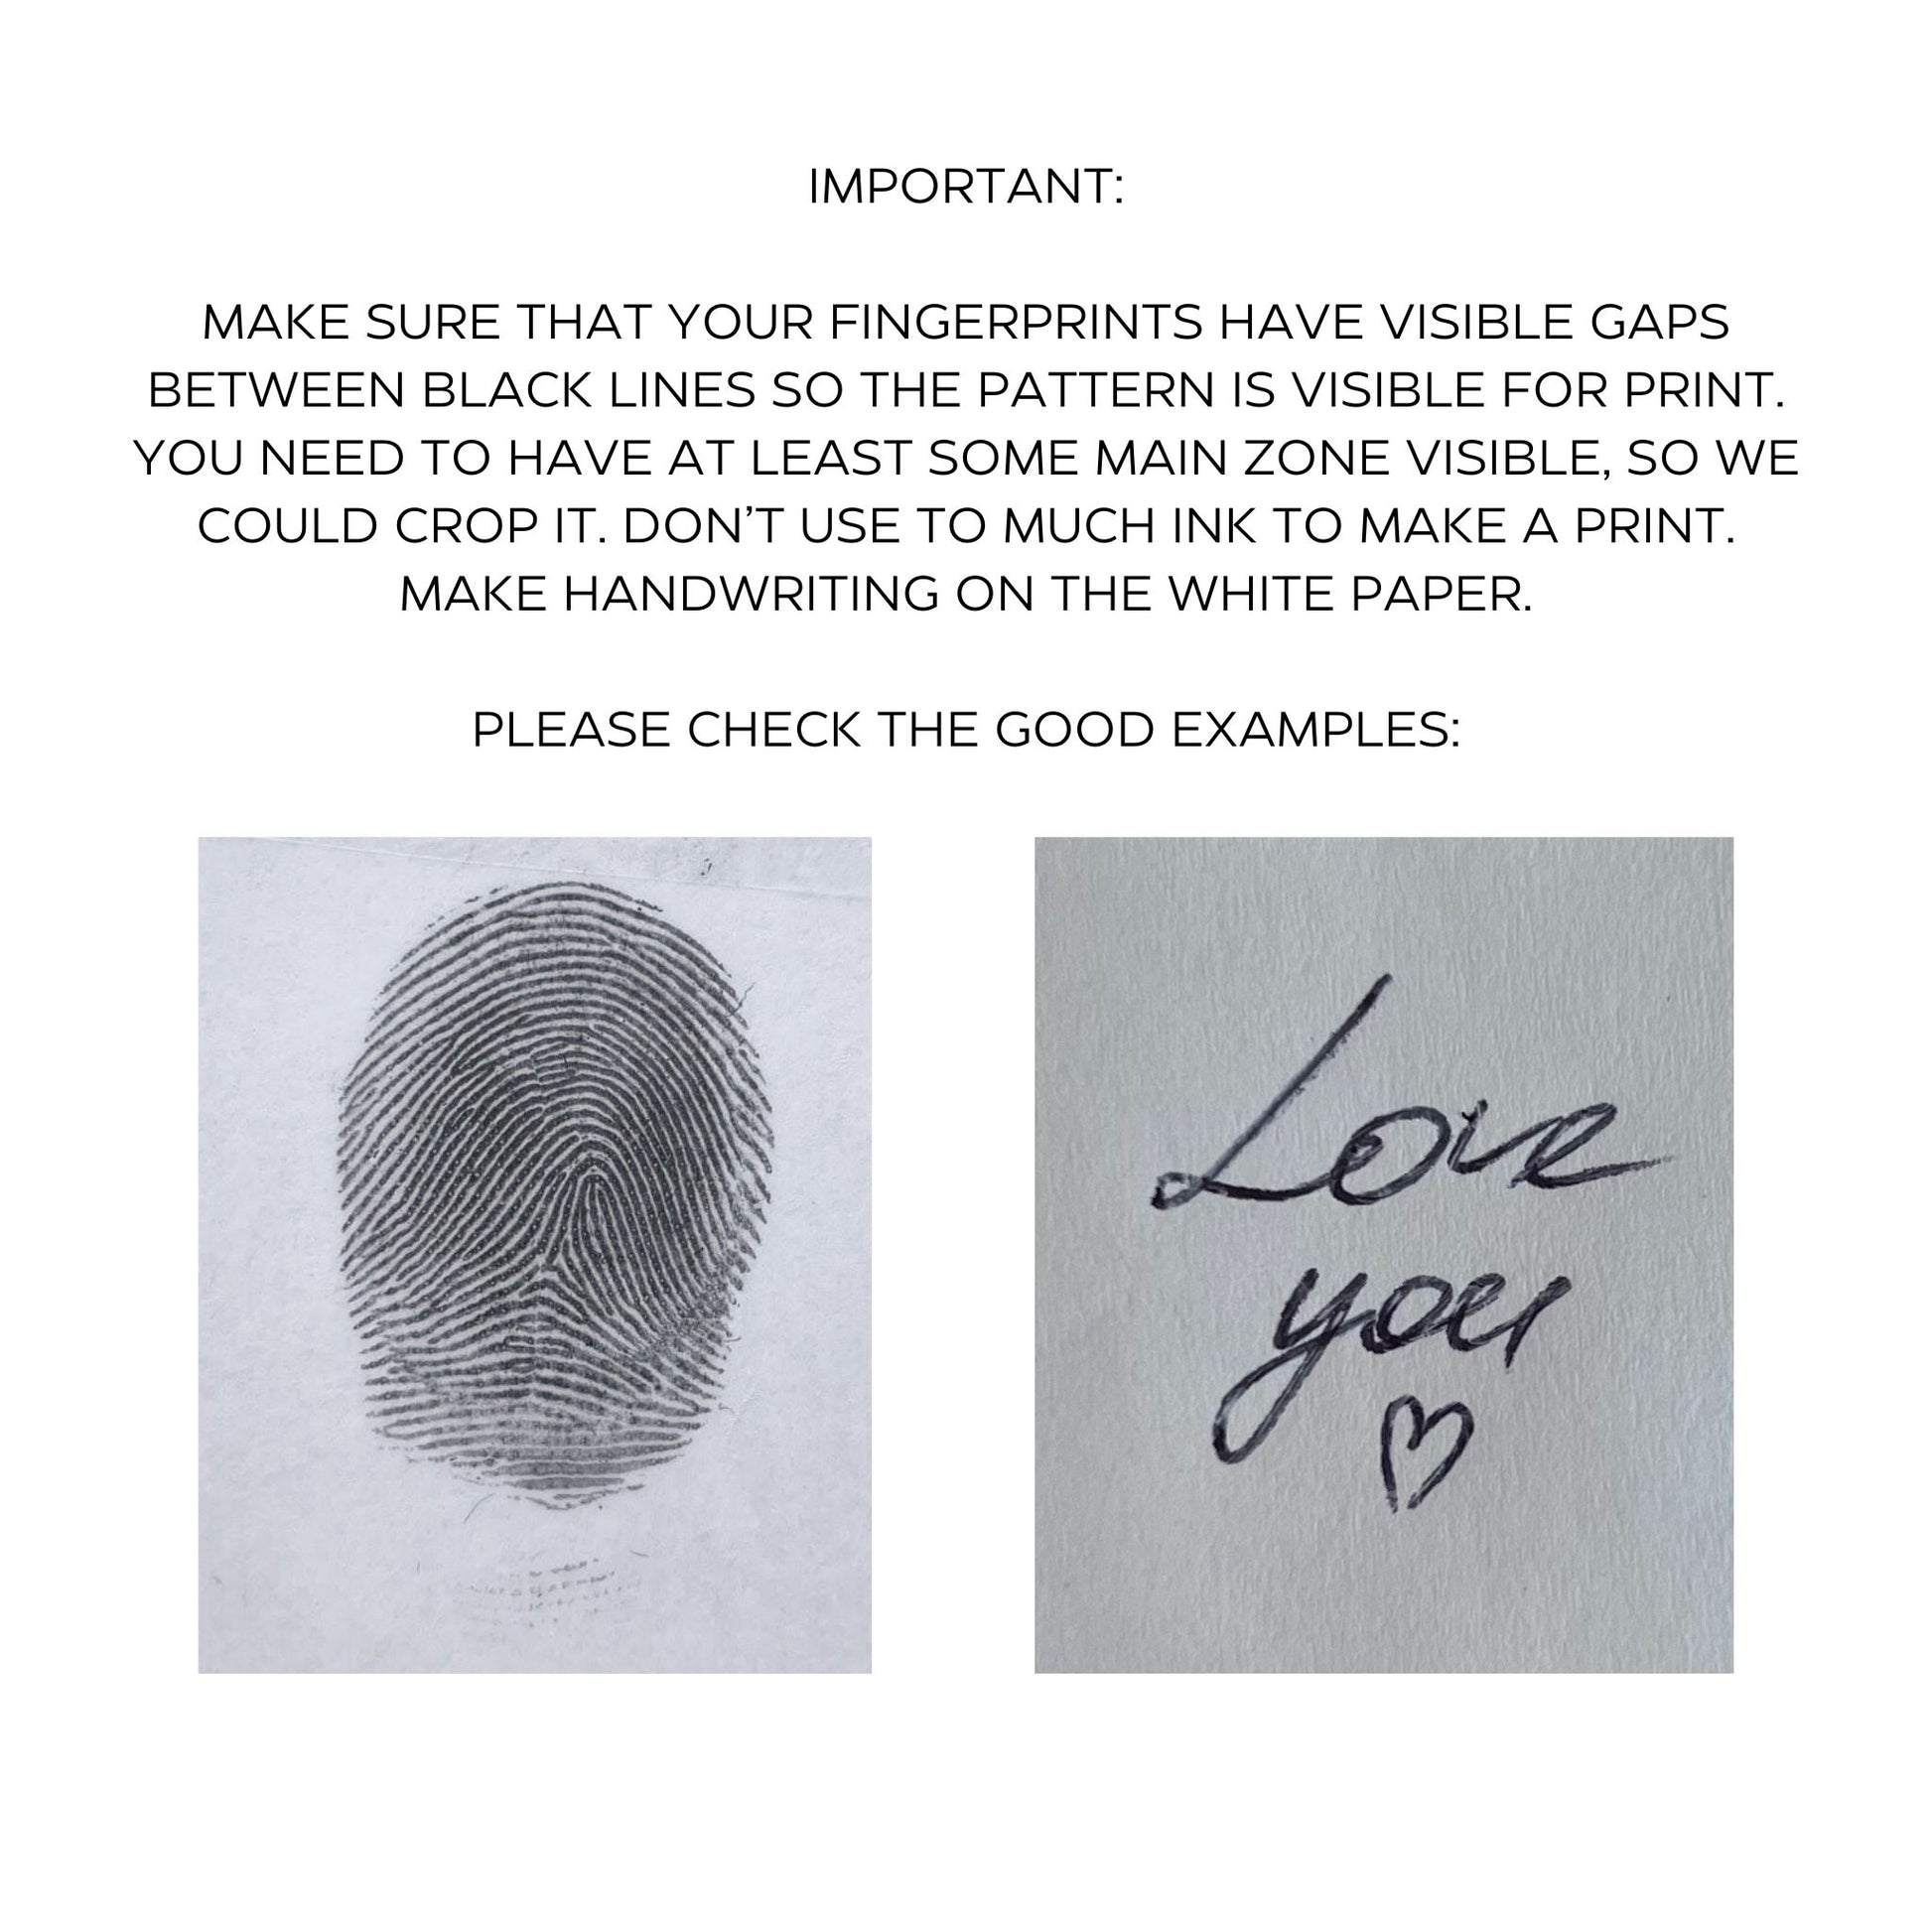 IMPORTANT:
MAKE SURE THAT YOUR FINGERPRINTS HAVE VISIBLE GAPS
BETWEEN BLACK LINES SO THE PATTERN IS VISIBLE FOR PRINT.
YOU NEED TO HAVE AT LEAST SOME MAIN ZONE VISIBLE, SO WE
COULD CROP IT. DON'T USE TO MUCH INK TO MAKE A PRINT.
MAKE HANDWRITING ON THE WHITE PAPER.
PLEASE CHECK THE GOOD EXAMPLES:
Love
you